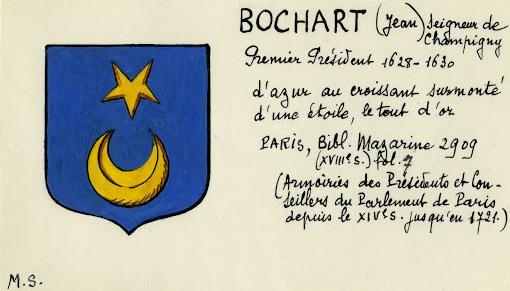 BOCHART (Jean) Seigneur de
Champigny
Premier Président 1628-1630
d'azur au croissant surmonté
d'une étoile, le tout d'or
PARIS, Bibl. Mazarine 2909
(XVIIIe s.) fol. 7
(Armoiries des Présidents et Con-
seillers du Parlement de Paris
depuis le XIVe s. jusqu'en 1721.)
M.S.